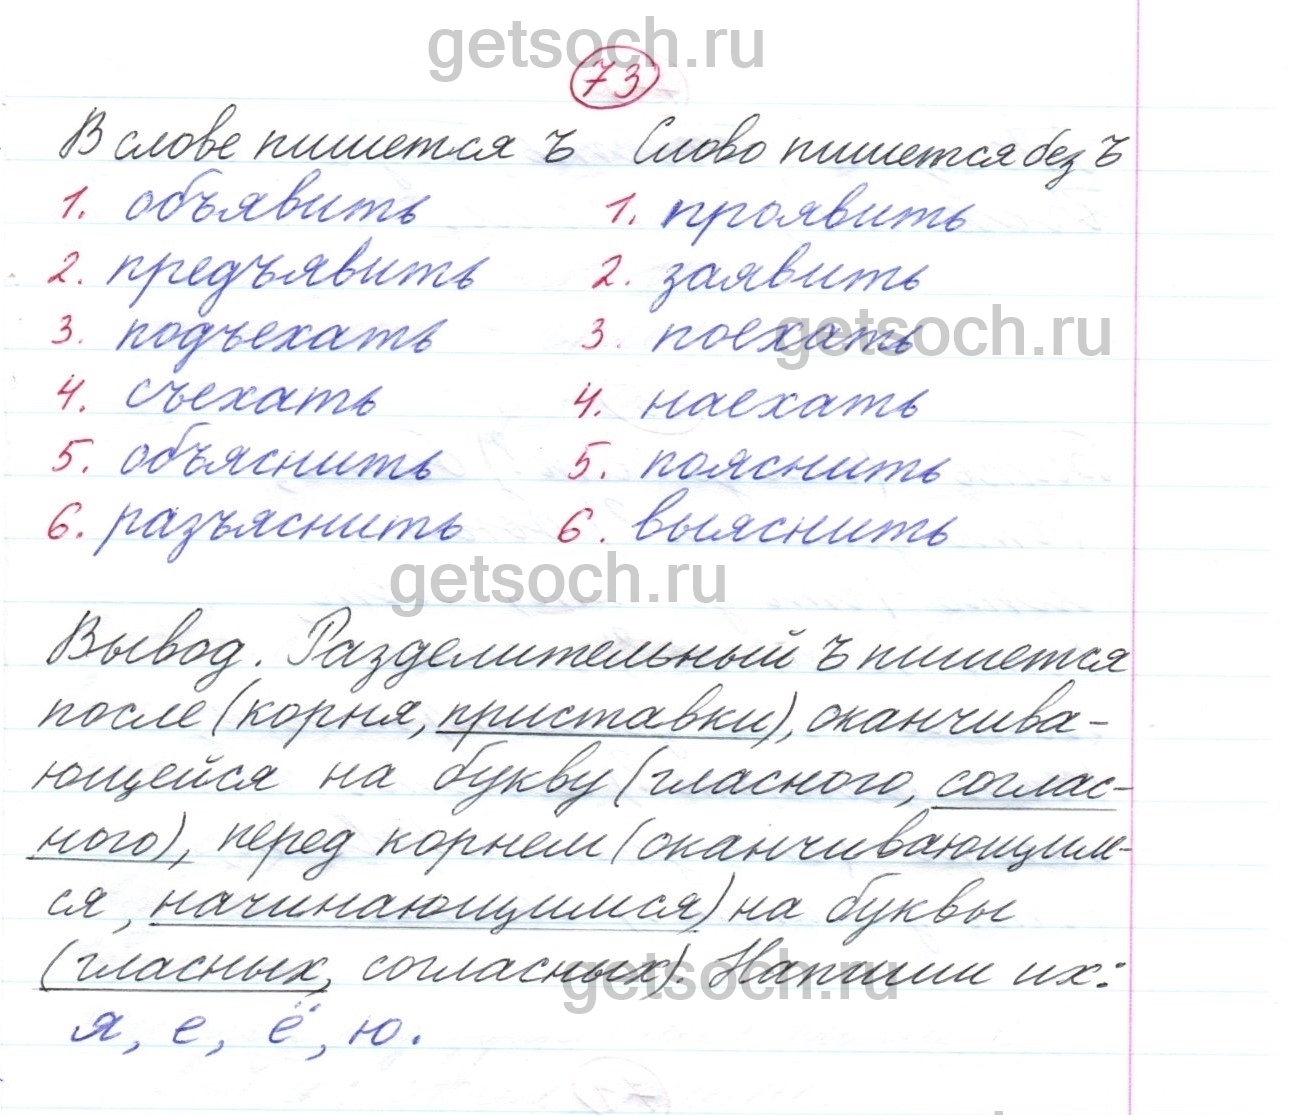 getsoch.ru
73
В слове пишется ъ Слово пишется без ъ
1. объявить 1. проявить
2. предъявить 2. заявить
3. подъехать 3. поехать
getsoch.ru
4. съехать 4. наехать
5. объяснить 5. пояснить
6. разъяснить 6. выяснить
getsoch.ru
Вывод. Разделительный ъ пишется
после (корня, приставки), оканчива-
ющейся на букву (гласного, соглас-
ного), перед корнем (оканчивающим-
ся, начинающимся) на буквы
(гласных, согласных). Напиши их:
getsoch.ru
я, е, ё, ю.